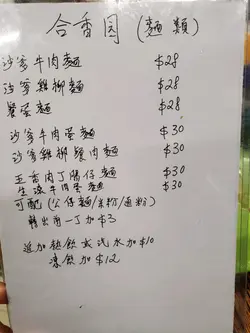 合香园 (麵類)
沙爹牛肉麵 $28
沙爹雞柳麵 $28
餐蛋麵 $28
沙爹牛肉蛋麵 $30
沙爹雞柳餐肉麵 $30
五香肉丁腸仔麵 $30
生滾牛肉蛋麵 $30
可配(公仔麵/米粉/通粉)
轉出前一丁加$3
追加熱飲或汽水加$10
凍飲加$12